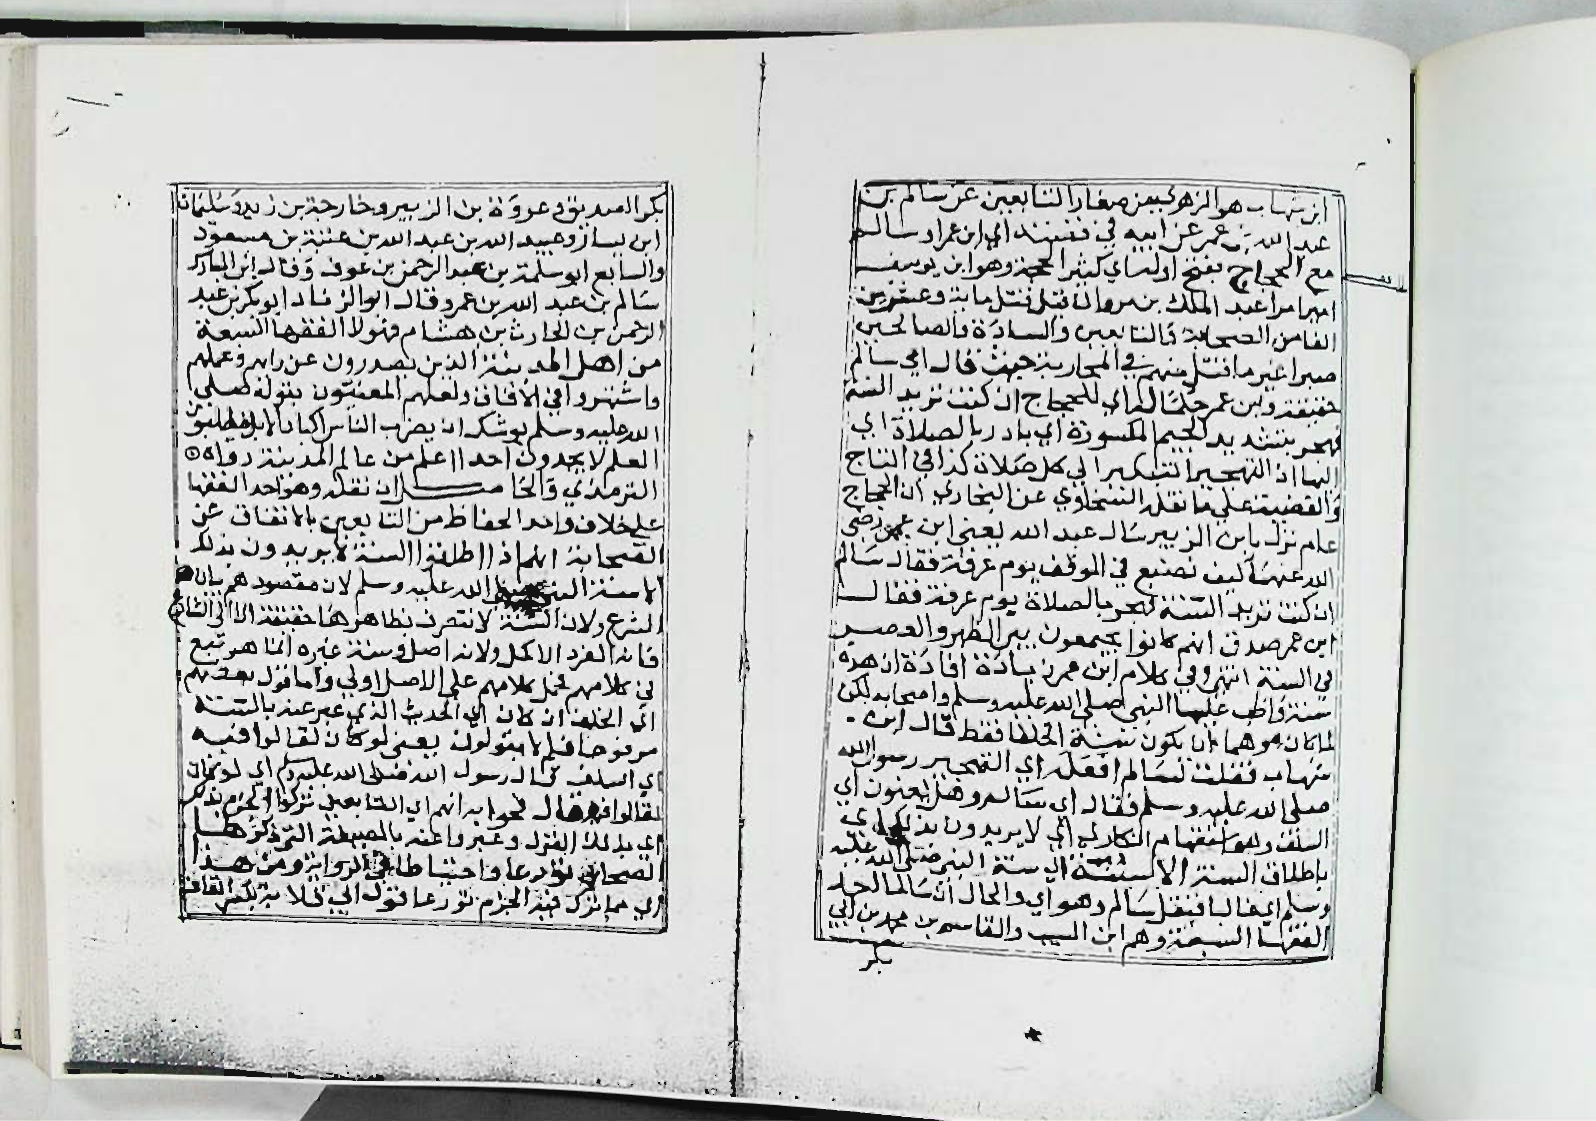 ابن شهاب هو الزهري من صغار التابعين عن سالم بن
عبد الله بن عمر عن ابيه في قصته اي ابن عمر او سالم
مع الحجاج بفتح اوله اي كثير الحجة وهو ابن يوسف
امير امرا عبد الملك بن مروان قيل قتل ماية وعشرين
الفا من الصحابة والتابعين والسادة والصالحين
صبرا غير ما قتل منهم في المحاربة حيث قال اي سالم
حقيقة وابن عمر حكما له اي للحجاج ان كنت تريد السنة
فهجر بتشديد الجيم المكسورة اي بادر بالصلاة اي
اليها اذ التهجير التبكير الي كل صلاة كذا في التاج
والقضية علي ما نقله السخاوي عن البخاري ان الحجاج
عام نزل بابن الزبير سال عبد الله يعني ابن عمر رضي
الله عنهما كيف نصنع في الموقف يوم عرفة فقال سالم
ان كنت تريد السنة فهجر بالصلاة يوم عرفة فقال
ابن عمر صدق انهم كانوا يجمعون بين الظهر والعصر
في السنة انتهي وفي كلام ابن عمر زيادة افادة ان هذه
سنة واظب عليها النبي صلي الله عليه وسلم واصحابه لكن
لما كان موهما ان يكون سنة الخلفا فقط قال ابن
شهاب فقلت لسالم افعله اي التهجير رسول الله
صلي الله عليه وسلم فقال اي سالم وهل يعنون اي
السلف وهو استفهام انكاري اي لا يريدون بذلك اي
باطلاق السنة الا سنته اي سنة النبي صلي الله عليه
وسلم اي غالبا فنقل سالم وهو اي والحال ان سالما احد
الفقها السبعة وهم ابن المسيب والقاسم بن محمد بن ابي
بكر
بكر الصديق وعروة بن الزبير وخارجة بن زيد وسليمان
ابن يسار وعبيد الله بن عبد الله بن عتبة بن مسعود
والسابع ابو سلمة بن عبد الرحمن بن عوف وقال ابن المبارك
سالم بن عبد الله بن عمر وقال ابو الزناد ابو بكر بن عبد
الرحمن بن الحارث بن هشام فهولا الفقها السبعة
من اهل المدينة الذين يصدرون عن رايهم وعملهم
واشتهروا في الافاق ولعلهم المعنيون بقوله صلي
الله عليه وسلم يوشك ان يضرب الناس اكباد الابل يطلبون
العلم لا يجدون احدا اعلم من عالم المدينة رواه
الترمذي والحاكم ان نقله وهو احد الفقها
علي خلاف واحد الحفاظ من التابعين بالاتفاق عن
الصحابة انهم اذا اطلقوا السنة لا يريدون بذلك
الا سنة النبي صلي الله عليه وسلم لان مقصودهم بيان
الشرع ولان السنة لا تنصرف بظاهرها حقيقة الا الي الشارع
فانه الفرد الاكمل ولانه اصل وسنة غيره انما هو تبع
في كلامهم فحمل كلامهم علي الاصل اولي واما قول بعضهم
اي الخلف ان كان اي الحديث الذي عبر عنه بالسنة
مرفوعا فلم لا يقولون يعني لو كان لقالوا فيه
اي السلف قال رسول الله صلي الله عليه وسلم اي لو كان
لقالوا فيه قال فجوابه انهم اي التابعين تركوا الجزم بذلك
اي بذلك القول وعبروا عنه بالصيغة التي ذكرها
الصحابي تورعا واحتياطا في الرواية ومن هذا
اي مما ترك فيه الجزم تورعا قول ابي قلابة بكسر القاف